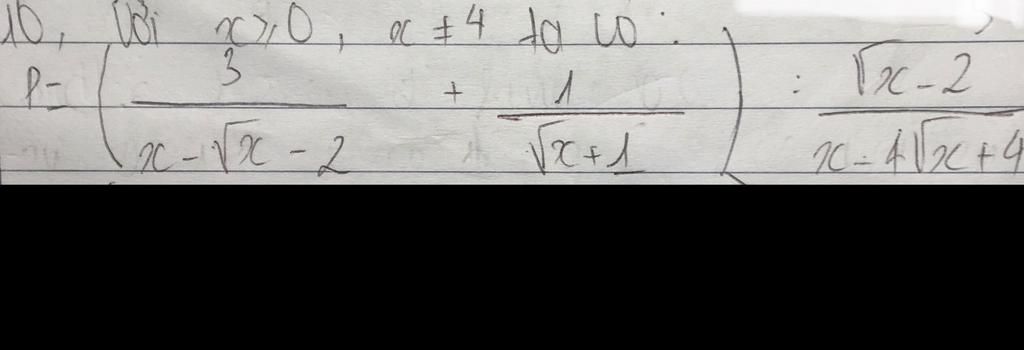 10, Với x ≥ 0, x ≠ 4 ta có:
P = ( 3 / (x - √x - 2) + 1 / (√x + 1) ) : (√x - 2) / (x - 4√x + 4)